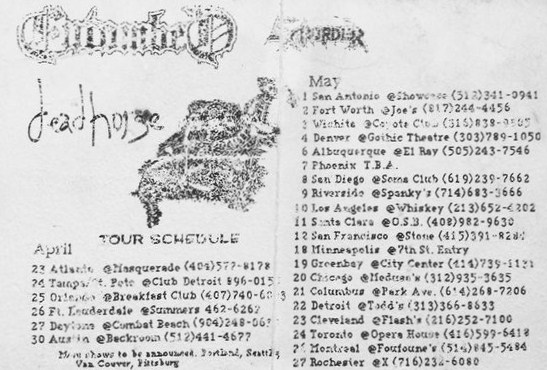 Entombed
Exhorder
deadhorse
TOUR SCHEDULE
April
23 Atlanta @Masquerade (404)577-8178
24 Tampa/St. Pete @Club Detroit
25 Orlando @Breakfast Club
26 Ft. Lauderdale @Summers 462-6262
27 Daytona @Combat Beach
30 Austin @Backroom (512)441-4677
More shows to be announced. Portland, Seattle,
Van Couver, Pittsburg
May
1 San Antonio @Showcase (512)341-0941
2 Fort Worth @Joe's (817)244-4456
3 Wichita @Coyote Club
4 Denver @Gothic Theatre (303)789-1050
6 Albuquerque @El Ray (505)243-7546
7 Phoenix T.B.A.
8 San Diego @Soma Club (619)239-7662
9 Riverside @Spanky's (714)683-3666
10 Los Angeles @Whiskey
11 Santa Clara @O.S.B. (408)982-9630
12 San Francisco @Stone
18 Minneapolis @7th St. Entry
19 Greenbay @City Center
20 Chicago @Medusa's (312)935-3635
21 Columbus @Park Ave. (614)268-7206
22 Detroit @Todd's (313)366-8633
23 Cleveland @Flash's (216)252-7100
24 Toronto @Opera House
25 Montreal @Foufoune's (514)845-5484
27 Rochester @X (716)232-6080